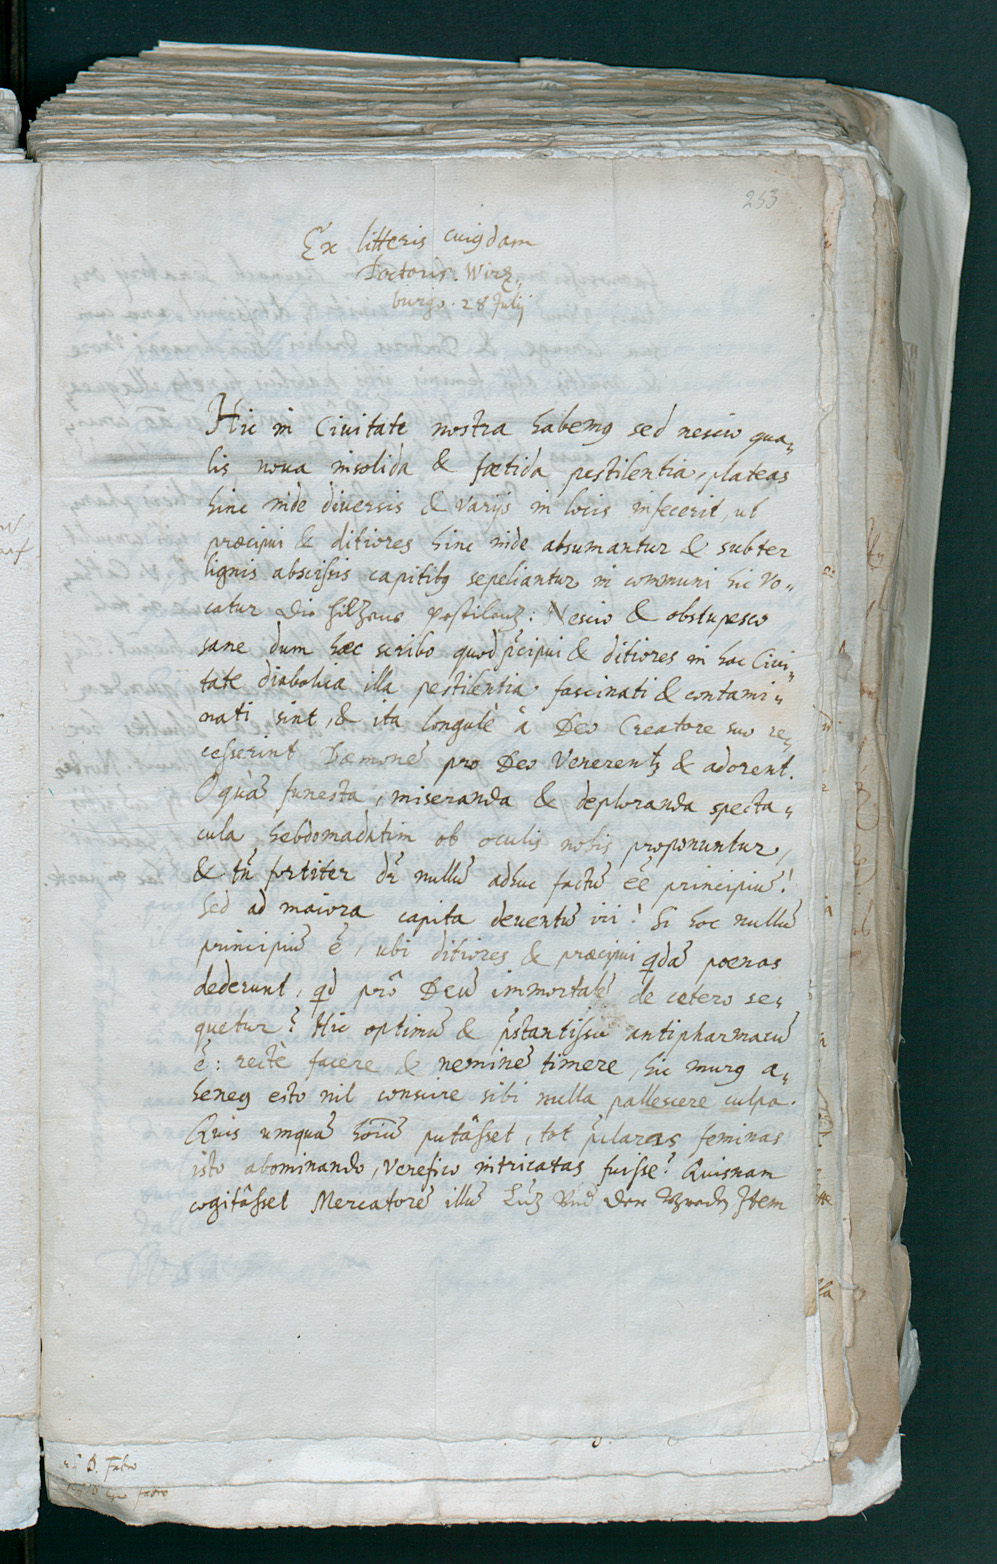 253
Ex litteris cuiusdam
Doctoris. Wirz„
burgo. 28 Julij
Hic in Ciuitate nostra habemus sed nescio qua„
lis noua insolida & foetida pestilentia, plateas
hinc inde diuersis & varijs in locis infecerit, ut
præcipui & ditiores hinc inde absumantur & subter
lignis abscissis capitibus sepeliantur in communi hic vo„
catur die hültzene pestilentz: Nescio & obstupesco
sane dum hæc scribo quod p̃cipui & ditiores in hac Ciui„
tate diabolica illa pestilentia fascinati & contami„
nati sint, & ita longulè â Deo Creatore suo re„
cesserint Dæmonē pro Deo Venerent & adorent.
O quā funesta, miseranda & deploranda specta„
cula hebdomadatim ob oculis nobis proponuntur,
& tn̄ fortiter dr̄ nullū adhuc factū eē principiū!
Sed ad maiora capita deuentū iri! Si hoc nullū
principiū ē, ubi ditiores & præcipui qdā poenas
dederunt, qd prô Deū immortalē de cetero se„
quetur? Hic optimū & p̃stantissū antipharmacū
ē: rectè facere & neminē timere, hic murus a„
heneus esto nil conscire sibi nulla pallescere culpa.
Quis umquā hoīū putâsset, tot p̃claras feminas
isto abominando, venefico intricatas fuisse? Quisnam
cogitâsset Mercatorē illū Item
D. Fabro
fabro